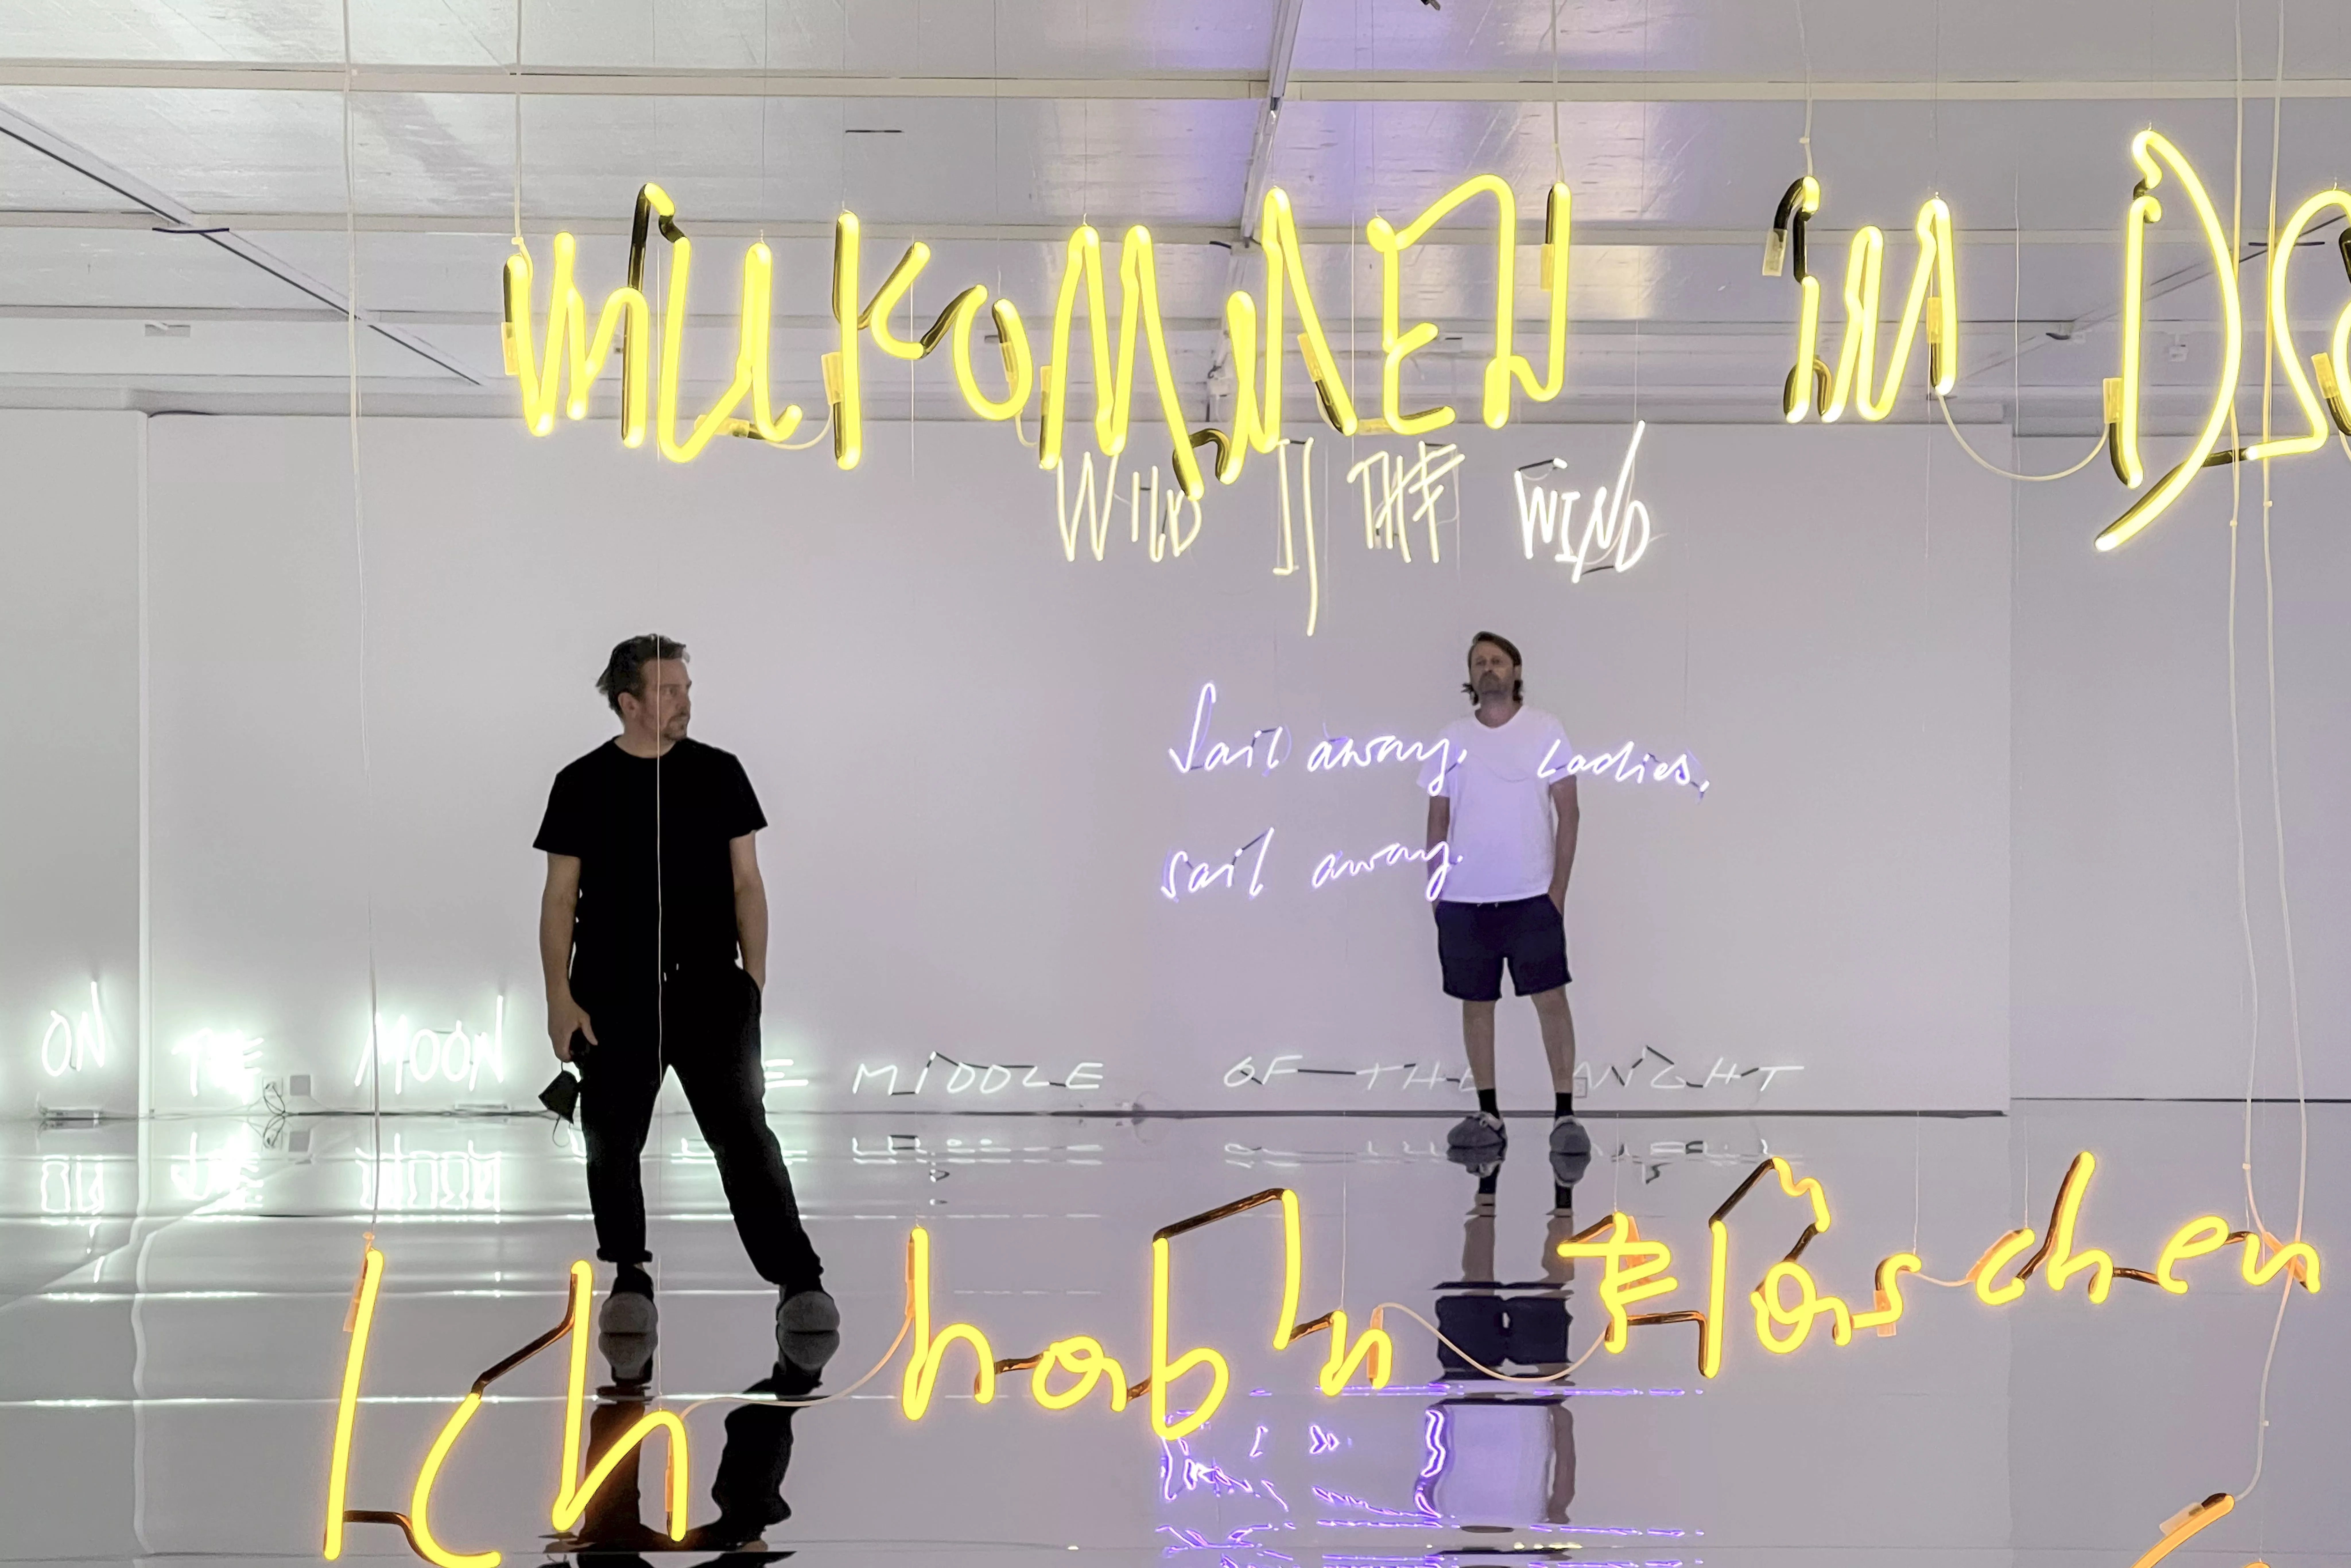 Willkommen in
WILD IS THE WIND
Sail away, Ladies,
sail away.
ON THE MOON
MIDDLE OF THE NIGHT
Ich hab'n Fläschen